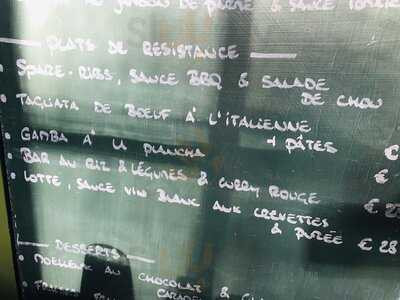 JAMBON DE PARME & SAUCE
PLATS DE RÉSISTANCE
• SPARE-RIBS, SAUCE BBQ & SALADE
DE CHOU
• TAGLIATA DE BOEUF À L'ITALIENNE
+ PÂTES €
• GAMBA À LA PLANCHA €
• BAR AU RIZ & LÉGUMES & CURRY ROUGE
• LOTTE, SAUCE VIN BLANC AUX CREVETTES €
& PURÉE € 28
DESSERTS
• MOELLEUX AU CHOCOLAT &